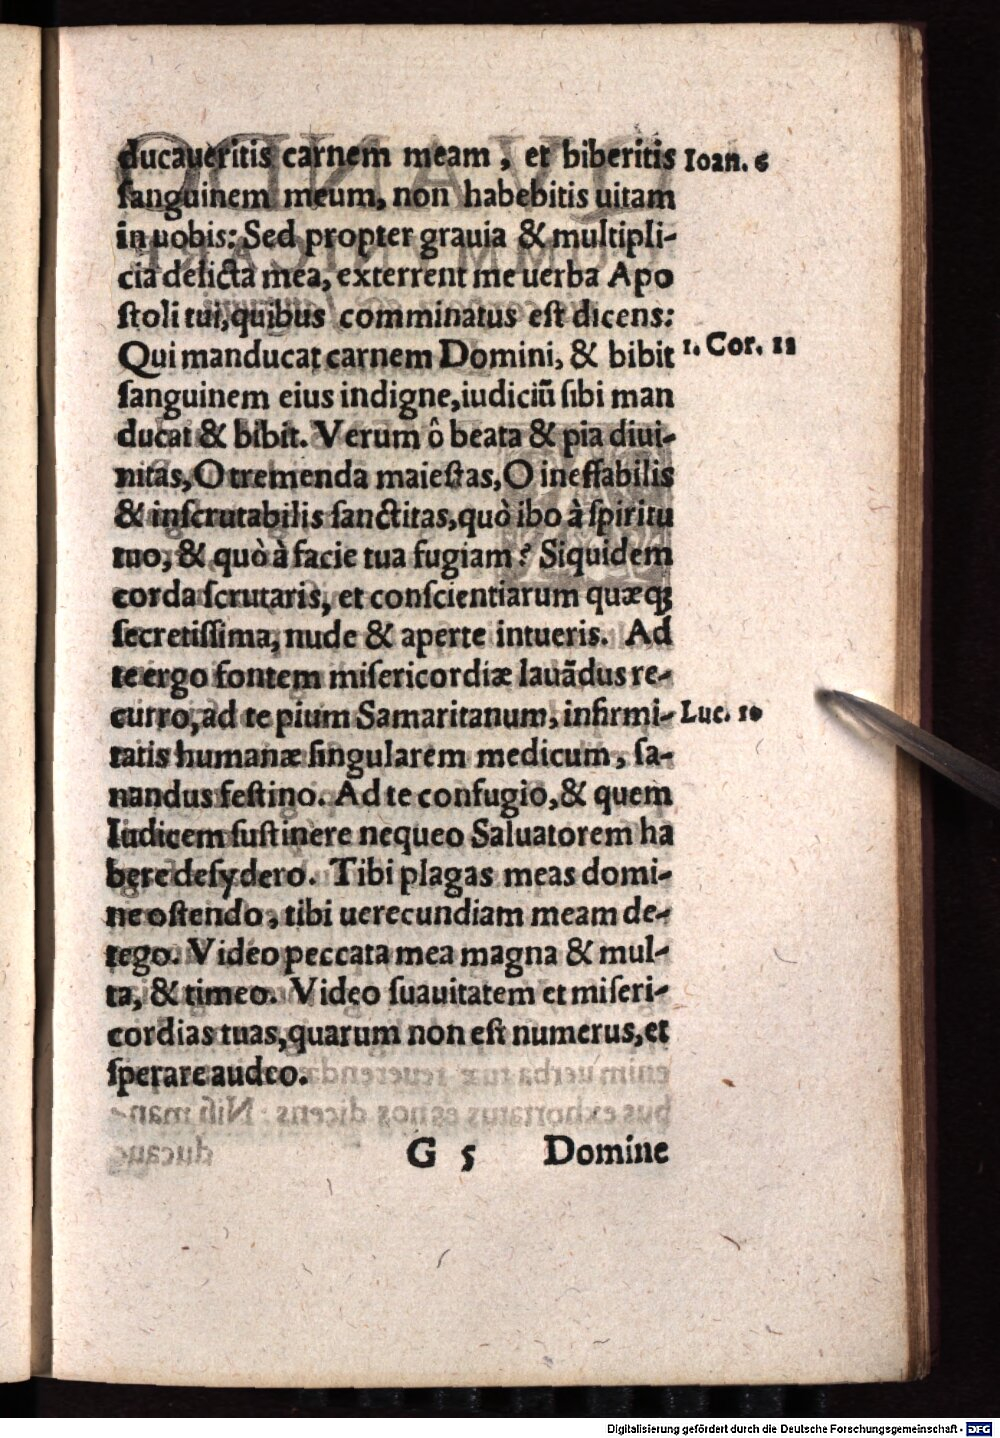 ducaueritis carnem meam, et biberitis Ioan. 6
ſanguinem meum, non habebitis uitam
in uobis: Sed propter grauia & multipli-
cia delicta mea, exterrent me uerba Apo
ſtoli tui, quibus comminatus eſt dicens:
Qui manducat carnem Domini, & bibit 1. Cor. 11
ſanguinem eius indigne, iudiciũ ſibi man
ducat & bibit. Verum ô beata & pia diui-
nitas, O tremenda maieſtas, O ineffabilis
& inſcrutabilis ſanctitas, quò ibo à ſpiritu
tuo, & quò à facie tua fugiam? Siquidem
corda ſcrutaris, et conſcientiarum quæqꝫ
ſecretiſſima, nude & aperte intueris. Ad
te ergo fontem miſericordiæ lauãdus re-
curro, ad te pium Samaritanum, infirmi- Luc. 10
tatis humanæ ſingularem medicum, ſa-
nandus feſtino. Ad te confugio, & quem
Iudicem ſuſtinere nequeo Saluatorem ha
bere deſydero. Tibi plagas meas domi-
ne oſtendo, tibi uerecundiam meam de-
tego. Video peccata mea magna & mul-
ta, & timeo. Video ſuauitatem et miſeri-
cordias tuas, quarum non eſt numerus, et
ſperare audeo.
G 5 Domine
Digitalisierung gefördert durch die Deutsche Forschungsgemeinschaft - DFG